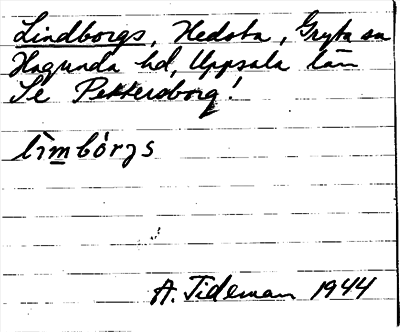 Lindborgs, Hedsta, Gryta sn
Hagunda hd, Uppsala län
Se Pettersborg!
lìmbórjs
A. Tideman 1944